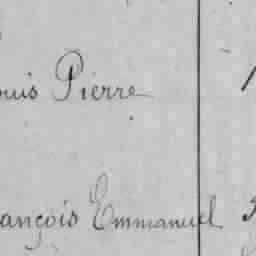 ouis Pierre
ançois Emmanuel